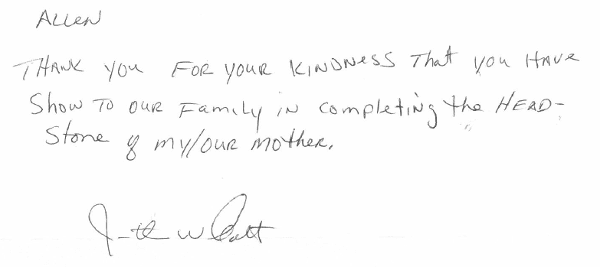 ALLEN
THANK YOU FOR YOUR KINDNESS That you HAVE
Show TO OUR Family in completing the HEAD-
Stone of my/our mother.